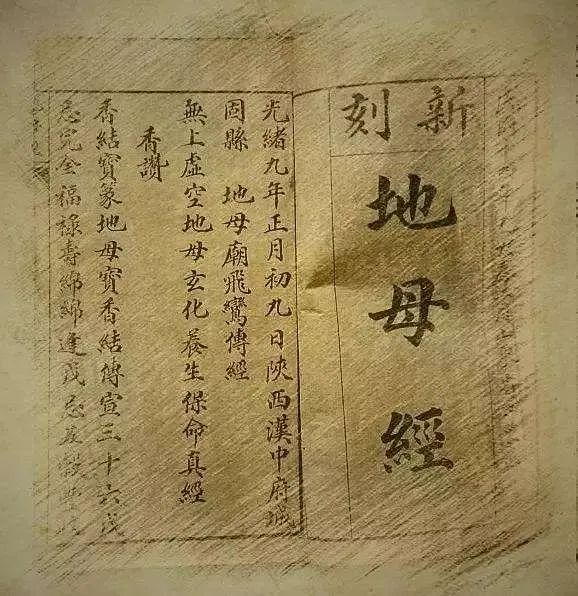 新刻
地母經
光緒九年正月初九日陝西漢中府城
固縣 地母廟飛鸞傳經
無上虛空地母玄化養生保命真經
香讚
香結寶篆地母寶香結傳宣三十六戊
忌完全福祿壽綿綿逢戊忌